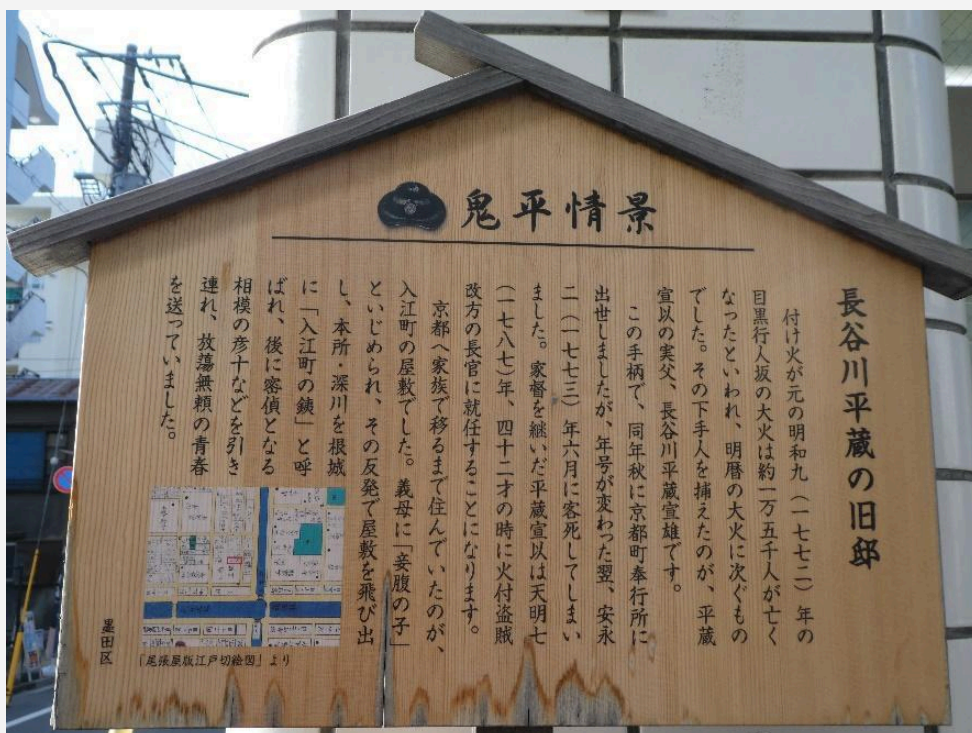 鬼平情景
長谷川平蔵の旧邸
付け火が元の明和九(一七七二)年の
目黒行人坂の大火は約一万五千人が亡く
なったといわれ、明暦の大火に次ぐもの
でした。その下手人を捕えたのが、平蔵
宣以の実父、長谷川平蔵宣雄です。
この手柄で、同年秋に京都町奉行所に
出世しましたが、年号が変わった翌、安永
二(一七七三)年六月に客死してしまい
ました。家督を継いだ平蔵宣以は天明七
(一七八七)年、四十二才の時に火付盗賊
改方の長官に就任することになります。
京都へ家族で移るまで住んでいたのが、
入江町の屋敷でした。義母に「妾腹の子」
といじめられ、その反発で屋敷を飛び出
し、本所・深川を根城
に「入江町の銕」と呼
ばれ、後に密偵となる
相模の彦十などを引き
連れ、放蕩無頼の青春
を送っていました。
「尾張屋版江戸切絵図」より
墨田区